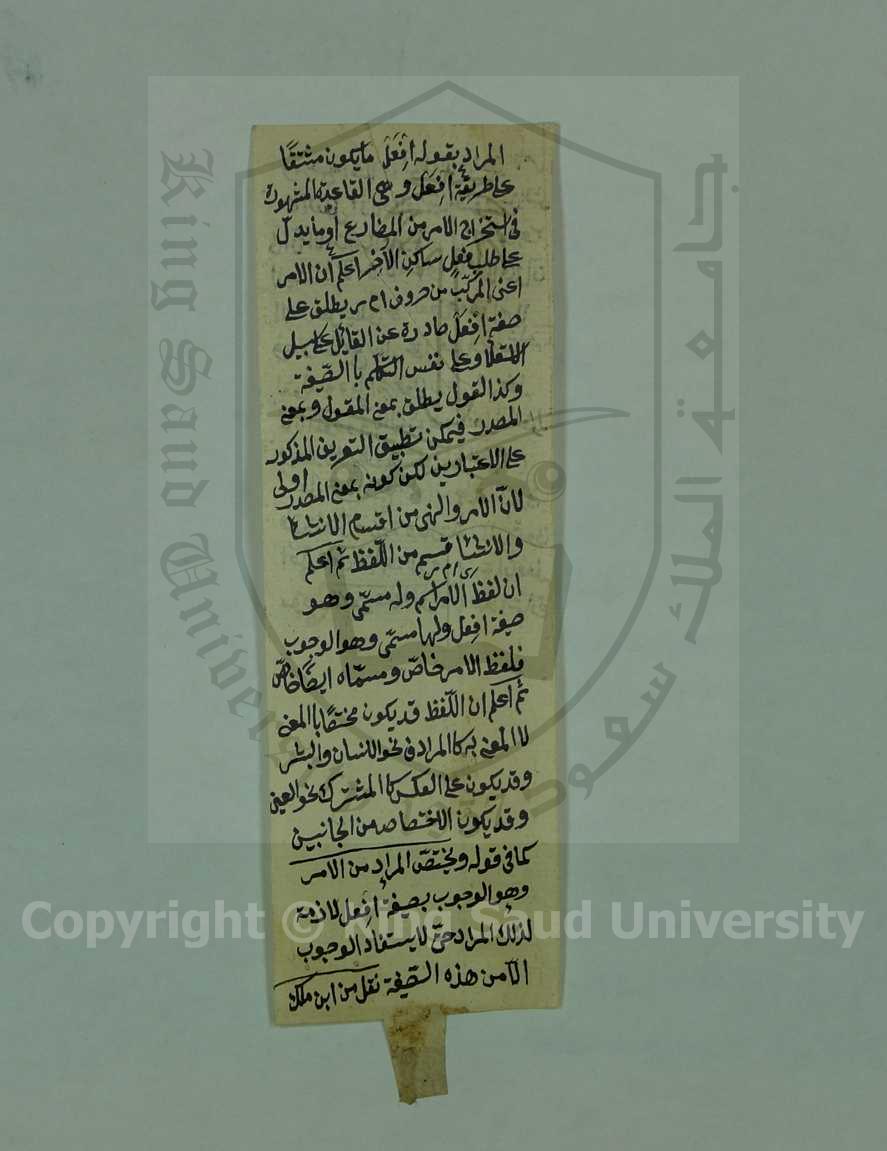 المراد بقوله افعل ما يكون مشتقا
على طريقة افعل وهي القاعدة المشهورة
في استخراج الامر من المضارع او ما يدل
على طلب فعل ساكن الآخر اعلم ان الامر
اعنى المركب من حروف ا م ر يطلق على
صيغة افعل صادرة عن القائل على سبيل
الاستعلا وعلى نفس التكلم باالصيغة
وكذا القول يطلق بمعنى المقول وبمعنى
المصدر فيمكن تطبيق التعريف المذكور
على الاعتبارين لكن كونه بمعنى المصدر اولى
لان الامر والنهى من اقسام الانشاء
والانشاء قسم من اللفظ ثم اعلم
ان لفظ الامر اسم وله مسمى وهو
صيغة افعل ولها مسمى وهو الوجوب
فلفظ الامر خاص ومسماه ايضا خاص
ثم اعلم ان اللفظ قد يكون مختصا باالمعنى
لا المعنى به كاالمرادف نحو الانسان والبشر
وقد يكون على العكس كاالمشترك نحو العين
وقد يكون الاختصاص من الجانبين
كما في قوله ويختص المراد من الامر
وهو الوجوب بصيغة افعل لازمة
لذلك المراد حتى لا يستفاد الوجوب
الا من هذه الصيغة نقل من ابن ملك
King Saud University
جامعة الملك سعود
Copyright © King Saud University